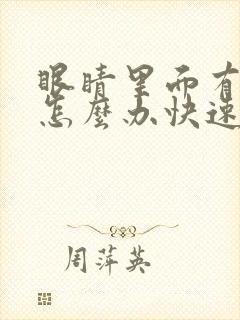 眼睛里面有
怎麽办快速
周萍英